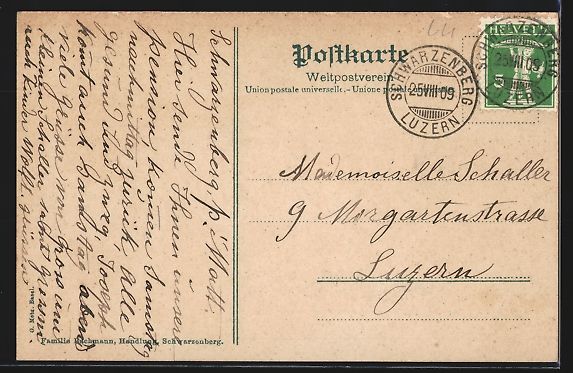 Postkarte
Weltpostverein
Union postale universelle. - Unione postale
SCHWARZENBERG
25.VIII.09
LUZERN
SCHWARZENBERG
25.VIII.09
LUZERN
HELVETIA
5
Mademoiselle Schaller
9 Morgartenstrasse
Luzern
Schwarzenberg p. Matt.
Hier sende Ihnen unsere
pension, komen Samstag
nachmittag zurück Alle
gesund und zwäg, Joseph
komt auch Samstag abends
viele Grüsse von
Schaller
auch Kinder
O. Metz, Basel.
Familie Bachmann, Handlung, Schwarzenberg.